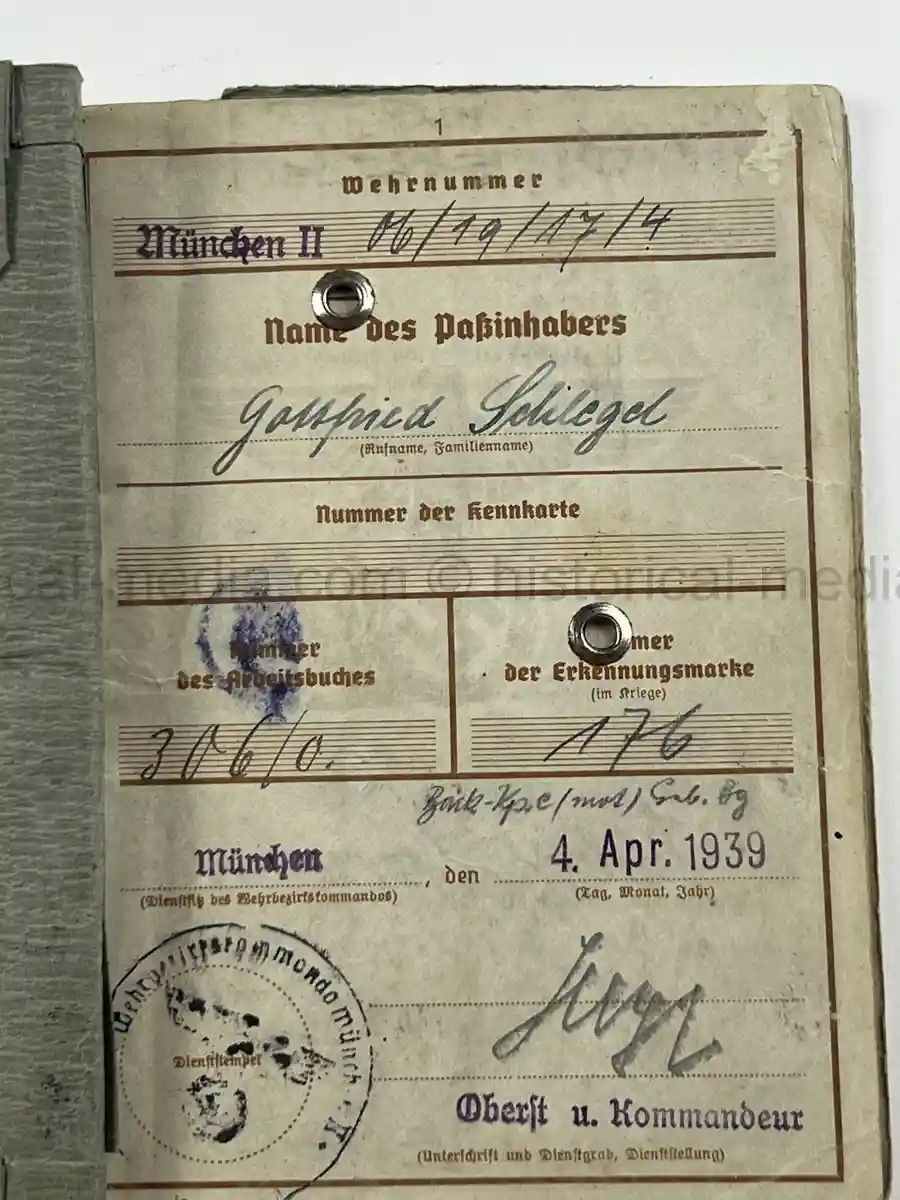 1
Wehrnummer
München II 06/19/17/4
Name des Paßinhabers
Gottfried Schlegel
(Rufname, Familienname)
Nummer der Kennkarte
cal-media.com © historical-media
Nummer
des Arbeitsbuches
306/0.
mer
der Erkennungsmarke
(im Kriege)
176
Bäck-Kp. (mot) Geb.
München, den 4. Apr. 1939
(Dienstsitz des Wehrbezirkskommandos) (Tag, Monat, Jahr)
Wehrbezirkskommando Münch
Dienststempel
Oberst u. Kommandeur
(Unterschrift und Dienstgrad, Dienststellung)